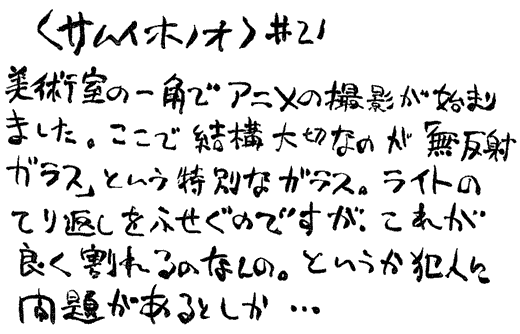 〈サムイホノオ〉#21
美術室の一角でアニメの撮影が始まり
ました。ここで結構大切なのが「無反射
ガラス」という特別なガラス。ライトの
てり返しをふせぐのですが、これが
良く割れるのなんの。というか犯人に
問題があるとしか…